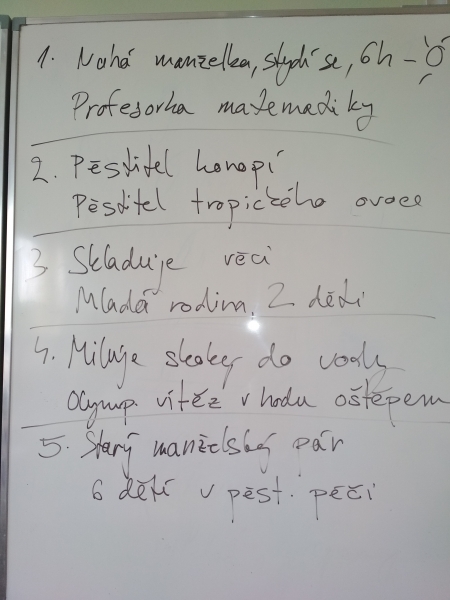 1. Nahá manželka, stydí se, 6h -
Profesorka matematiky
2. Pěstitel konopí
Pěstitel tropického ovoce
3. Skladuje věci
Mladá rodina, 2 děti
4. Miluje skoky do vody
Olymp. vítěz v hodu oštěpem
5. Starý manželský pár
6 dětí v pěst. péči